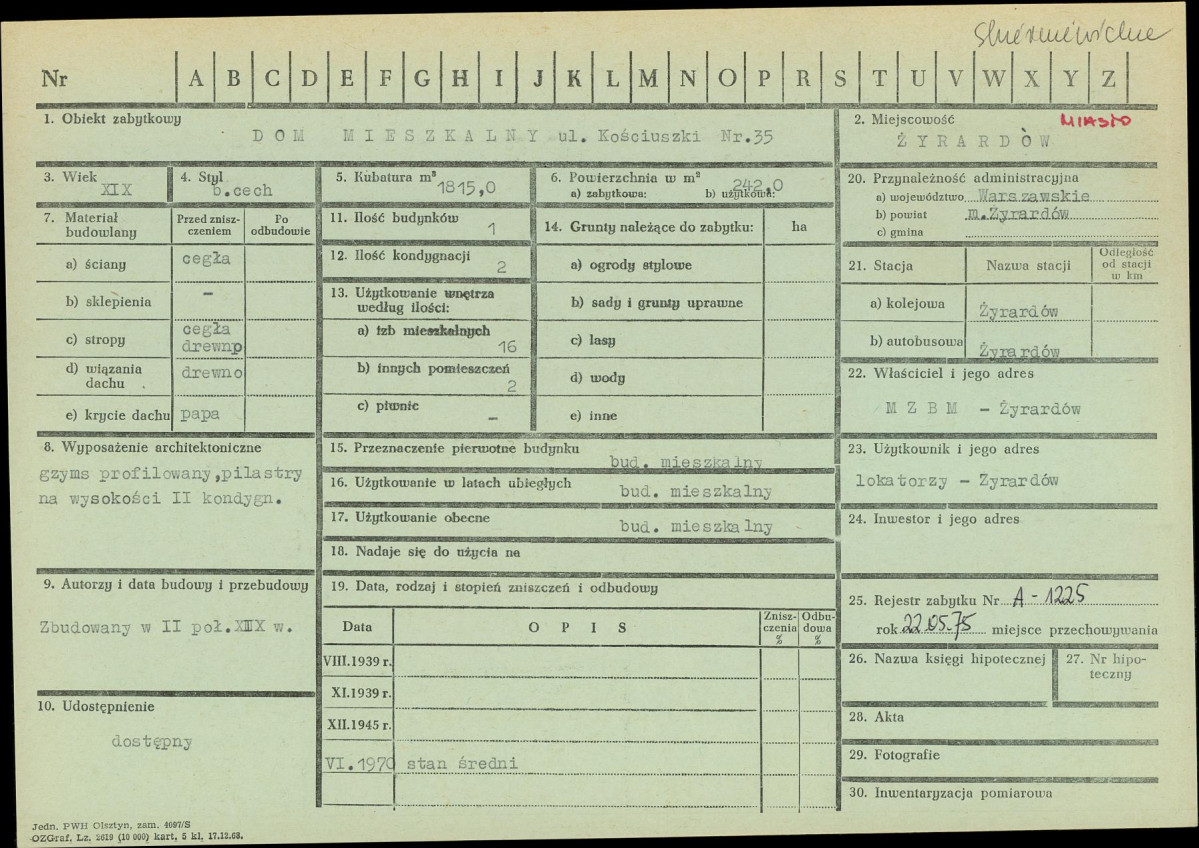 Skierniewickie
Nr A B C D E F G H I J K L M N O P R S T U V W X Y Z
1. Obiekt zabytkowy
DOM MIESZKALNY ul. Kościuszki Nr.35
2. Miejscowość MIASTO
ŻYRARDÒW
3. Wiek
XIX
4. Styl
b.cech
5. Kubatura m³
1815,0
6. Powierzchnia w m²
a) zabytkowa: b) użytkowa:
242,0
20. Przynależność administracyjna
a) województwo Warszawskie
b) powiat m.Żyrardów
c) gmina
7. Materiał budowlany
Przed zniszczeniem
Po odbudowie
a) ściany cegła
b) sklepienia –
c) stropy cegła
drewno
d) wiązania dachu drewno
e) krycie dachu papa
11. Ilość budynków
1
12. Ilość kondygnacji
2
13. Użytkowanie wnętrza
według ilości:
a) izb mieszkalnych
16
b) innych pomieszczeń
2
c) piwnic
–
14. Grunty należące do zabytku: ha
a) ogrody stylowe
b) sady i grunty uprawne
c) lasy
d) wody
e) inne
21. Stacja Nazwa stacji Odległość od stacji w km
a) kolejowa Żyrardów
b) autobusowa Żyrardów
22. Właściciel i jego adres
M Z B M – Żyrardów
8. Wyposażenie architektoniczne
gzyms profilowany,pilastry
na wysokości II kondygn.
15. Przeznaczenie pierwotne budynku
bud. mieszkalny
16. Użytkowanie w latach ubiegłych
bud. mieszkalny
17. Użytkowanie obecne
bud. mieszkalny
18. Nadaje się do użycia na
23. Użytkownik i jego adres
lokatorzy – Żyrardów
24. Inwestor i jego adres
9. Autorzy i data budowy i przebudowy
Zbudowany w II poł.XIX w.
10. Udostępnienie
dostępny
19. Data, rodzaj i stopień zniszczeń i odbudowy
Data O P I S Zniszczenia % Odbudowa %
VIII.1939 r.
XI.1939 r.
XII.1945 r.
VI.1970 stan średni
25. Rejestr zabytku Nr A - 1225
rok 22.05.75 miejsce przechowywania
26. Nazwa księgi hipotecznej
27. Nr hipoteczny
28. Akta
29. Fotografie
30. Inwentaryzacja pomiarowa
Jedn. PWH Olsztyn, zam. 4097/S
OZGraf. Lz. 2619 (10 000) kart. 5 kl. 17.12.68.